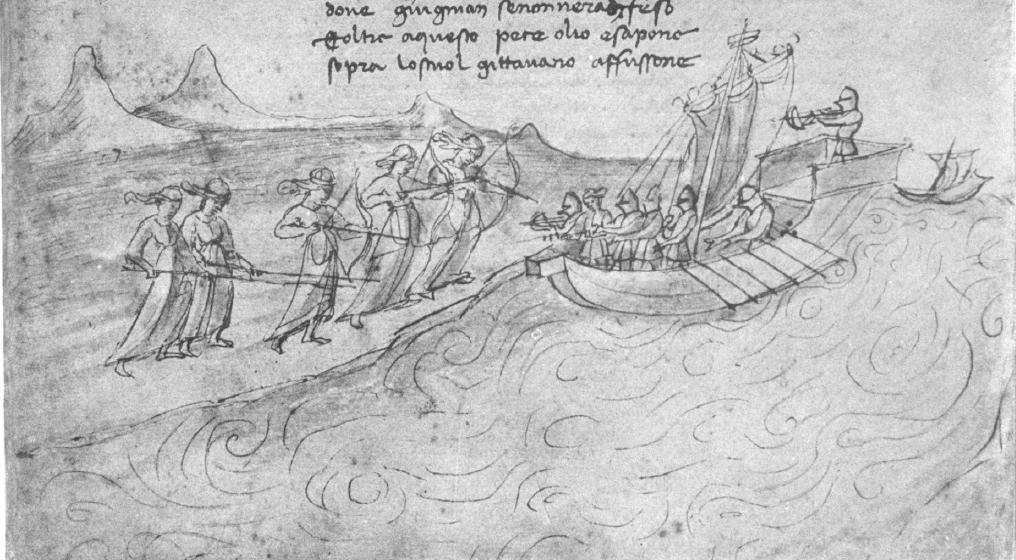 doue giugnian senonneradifeso
Eoltre aquesto pece olio esapone
sopra lostuol gittauano affussone